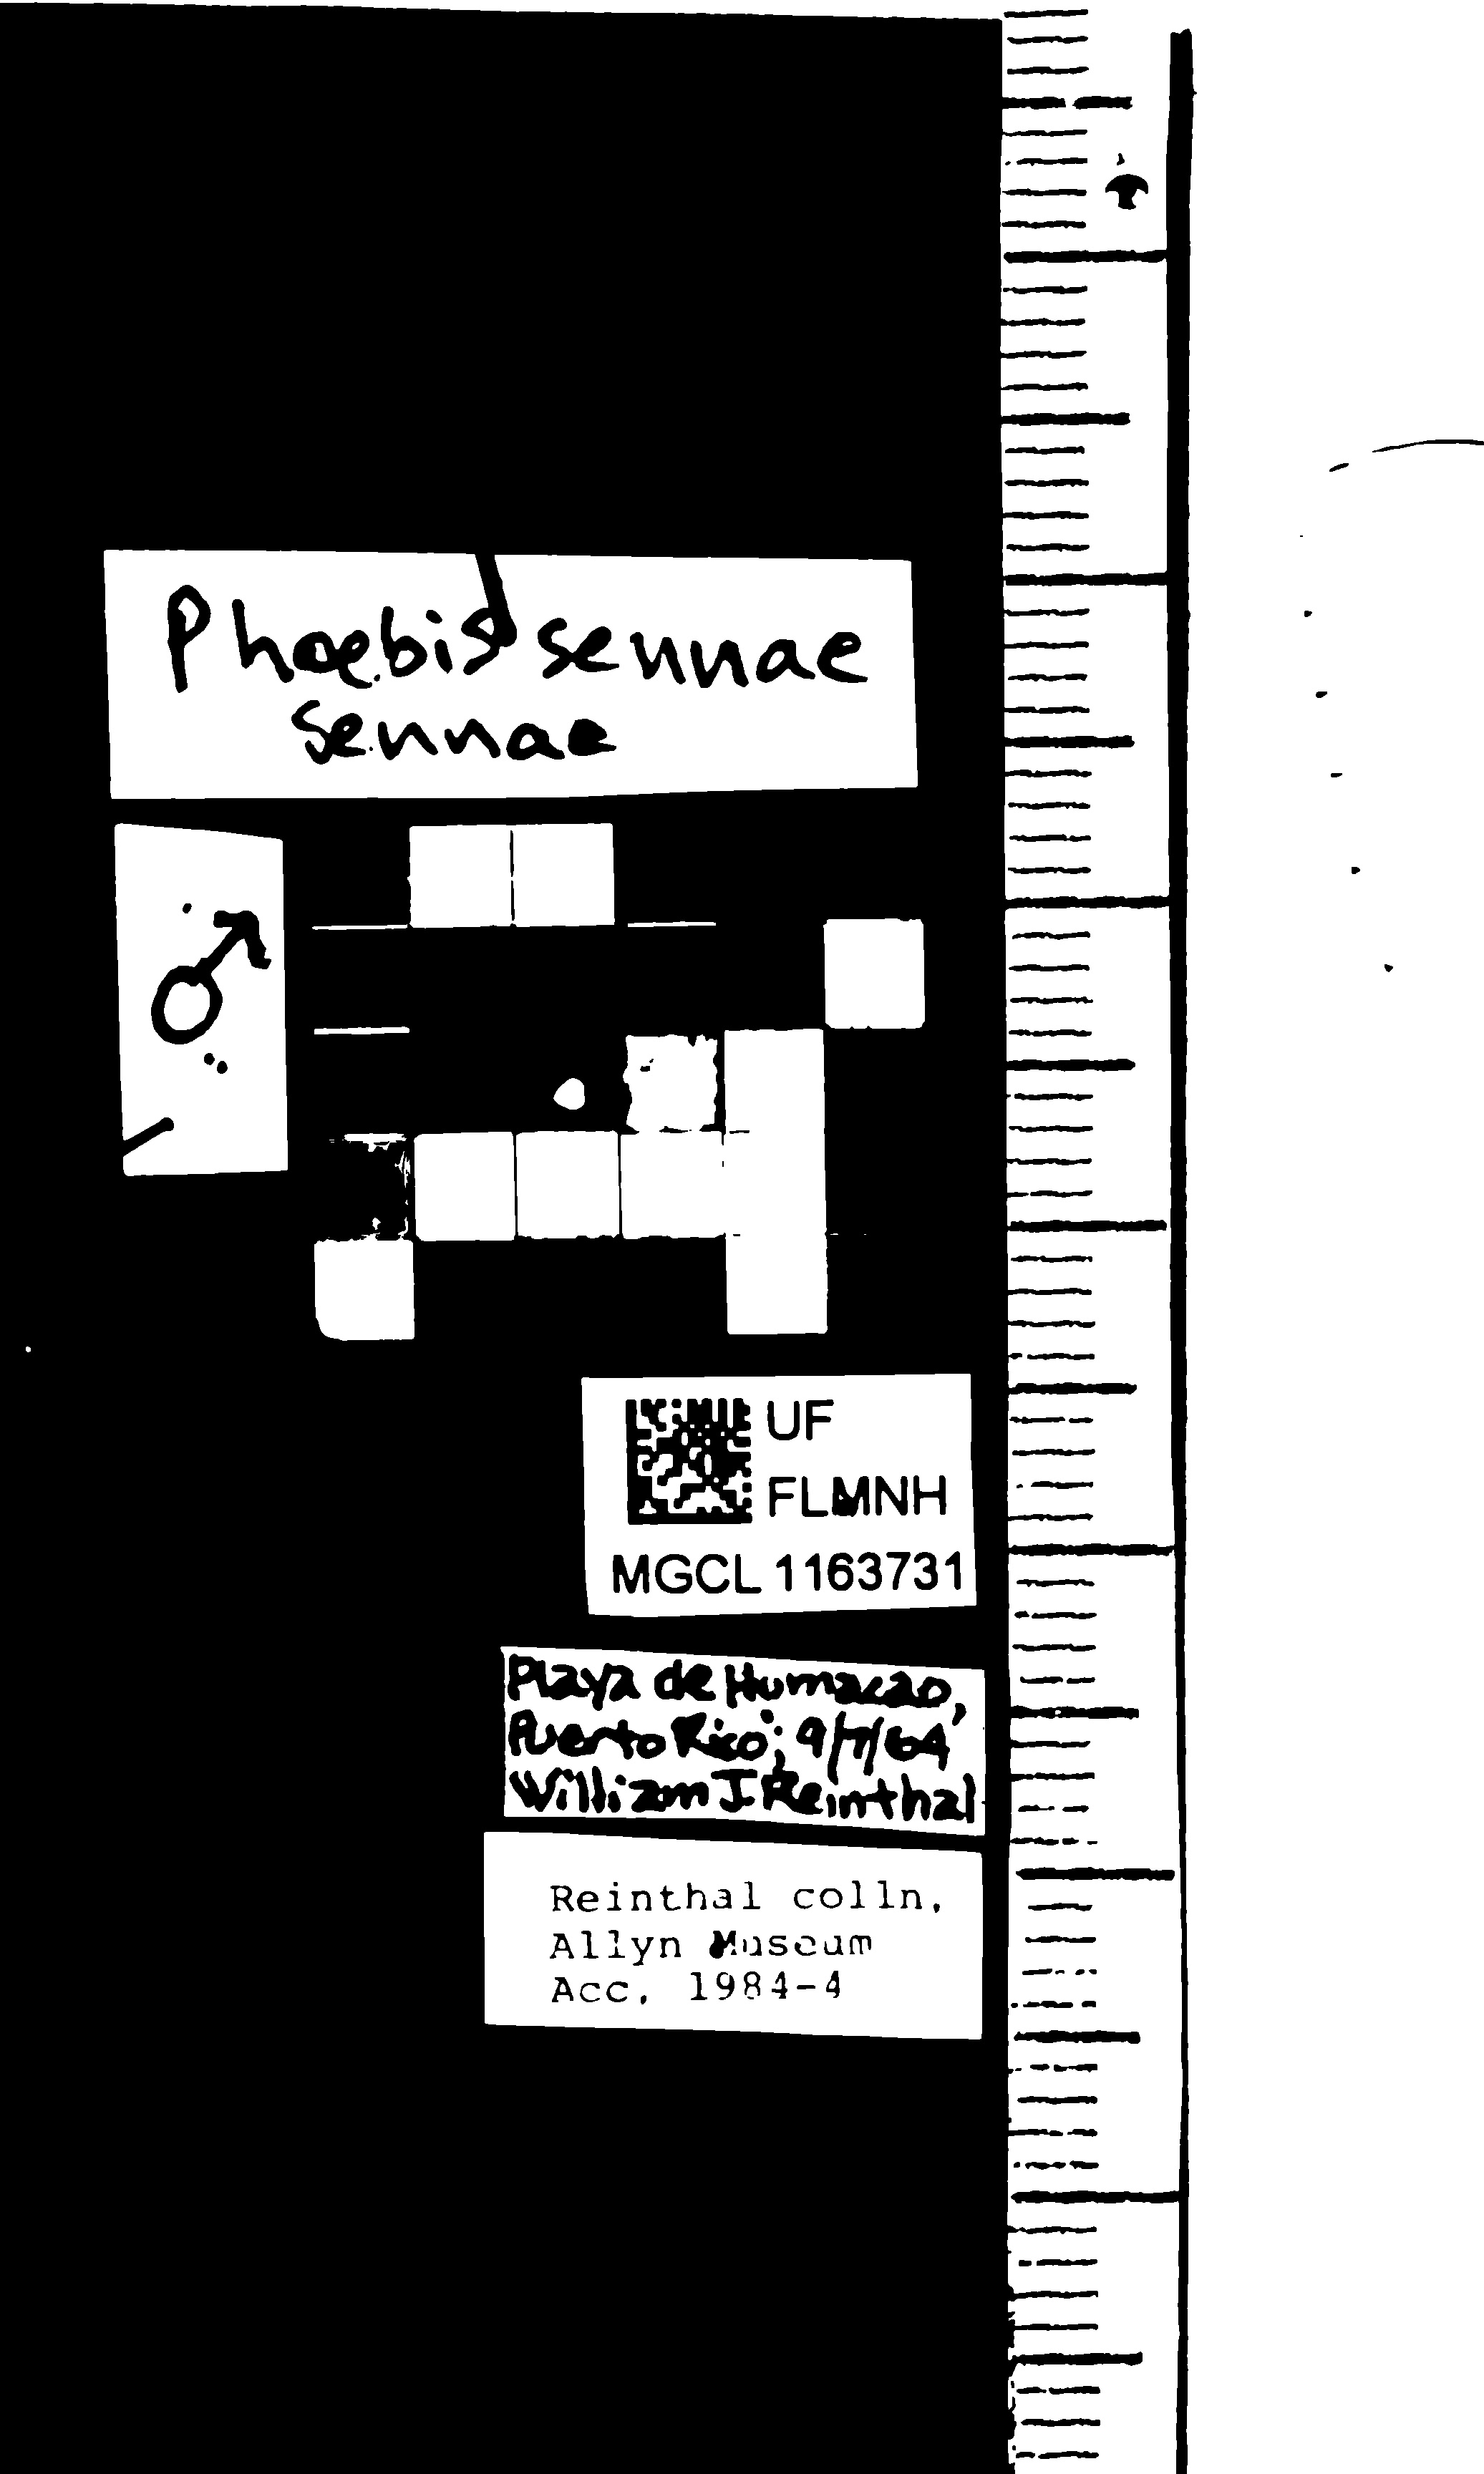 Phoebis sennae
sennae
♂
UF
FLMNH
MGCL 1163731
Playa de Humacao,
Puerto Rico; 9/7/64
William J. Reinthal
Reinthal colln.
Allyn Museum
Acc. 1984-4